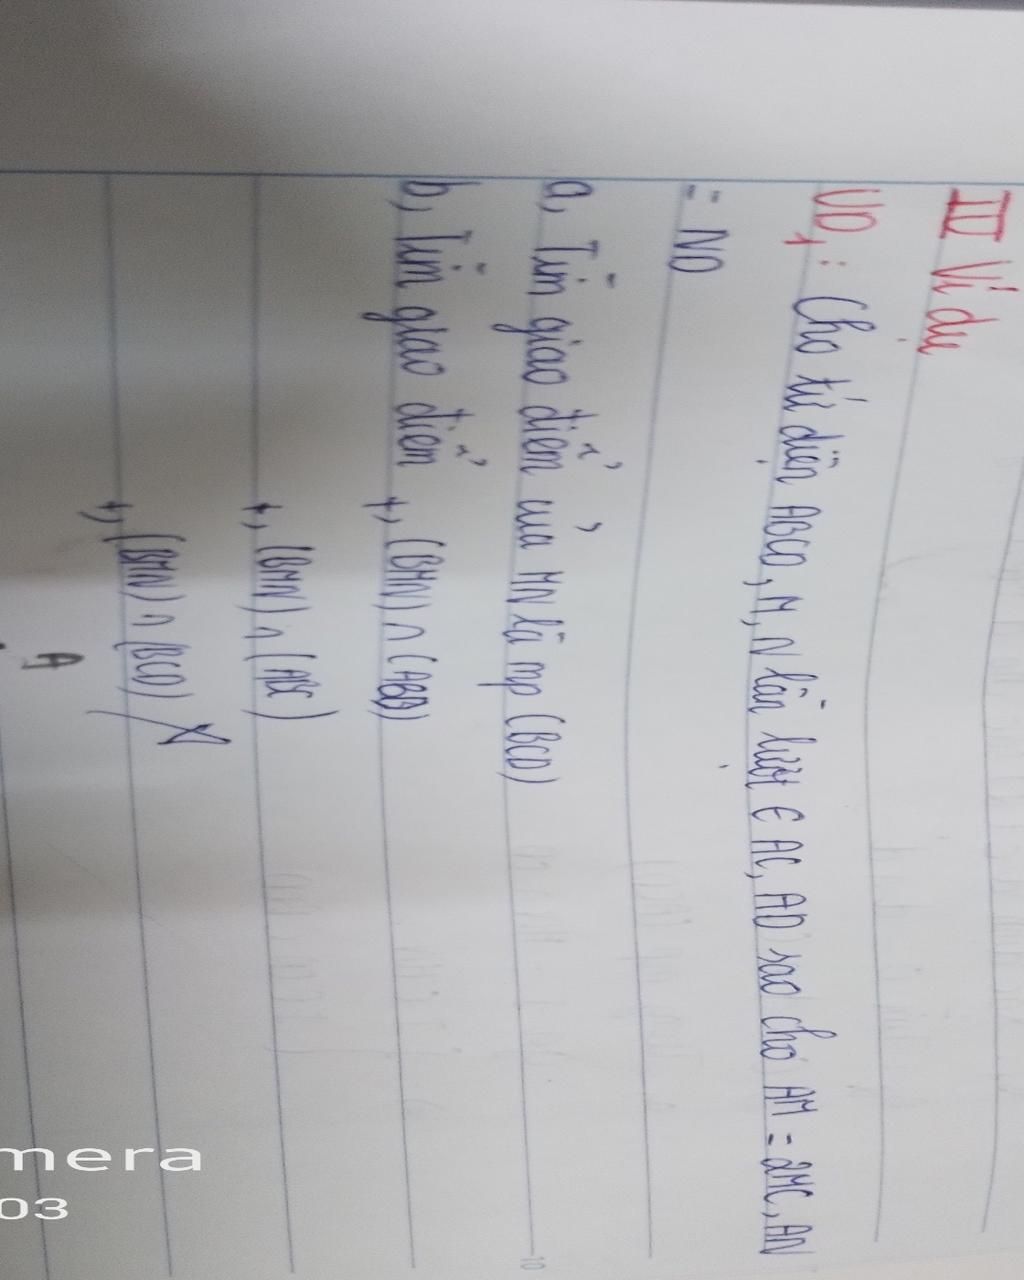 III Ví dụ
VD1: Cho tứ diện ABCD, M, N lần lượt ∈ AC, AD sao cho AM = 2MC, AN
= ND
a, Tìm giao điểm của MN là mp (BCD)
b, Tìm giao điểm +, (BMN) ∩ (ABD)
+, (BMN) ∩ (ABC)
+, (BMN) ∩ (BCD)
A
mera
03
10